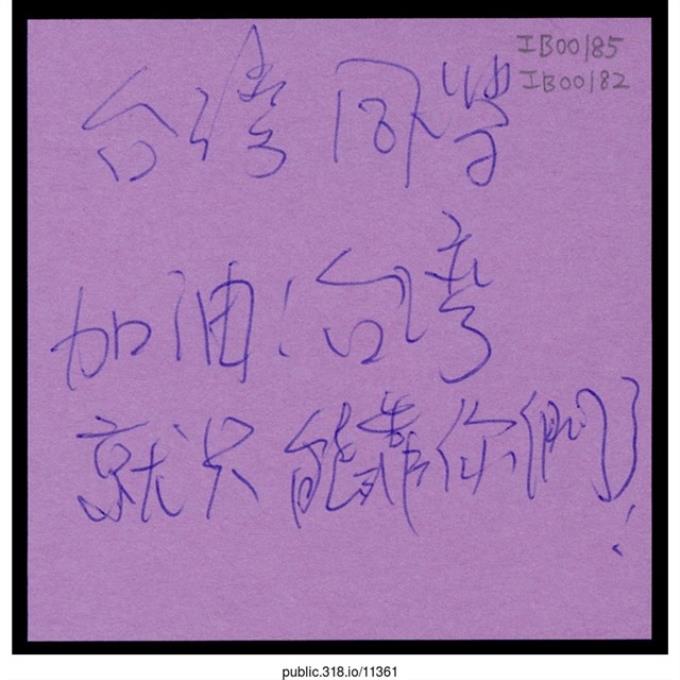 IB00185
IB00182
台湾同學
加油!台湾
就只能靠你們了!
public.318.io/11361